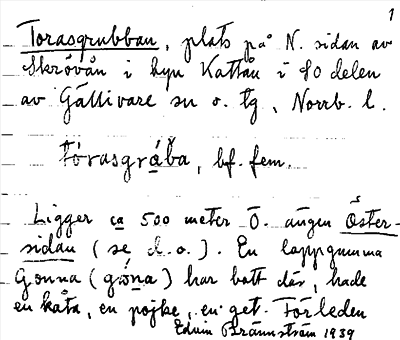 1
Torasgrubban, plats på N. sidan av
Skrövån i byn Kattån i SO delen
av Gällivare sn o. tg, Norrb. l.
tórasgrába, bf. fem.
Ligger ca 500 meter Ö. ängen Öster-
sidan (se d. o.). En lappgumma
Gonna (góna) har bott där, hade
en kåta, en pojke, en get. Förleden
Edvin Brännström 1939